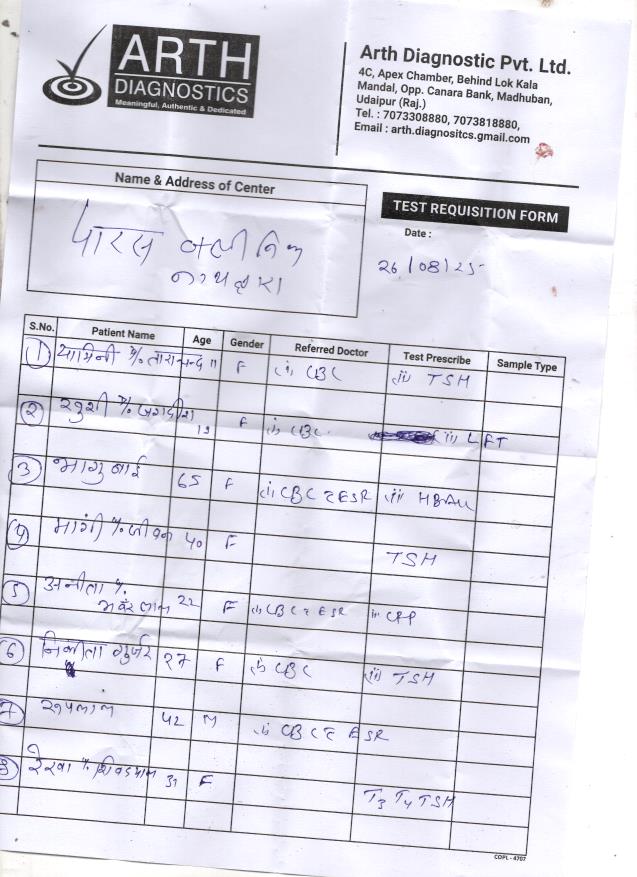 ARTH
DIAGNOSTICS
Meaningful, Authentic & Dedicated
Arth Diagnostic Pvt. Ltd.
4C, Apex Chamber, Behind Lok Kala
Mandal, Opp. Canara Bank, Madhuban,
Udaipur (Raj.)
Tel. : 7073308880, 7073818880,
Email : arth.diagnositcs.gmail.com
Name & Address of Center
पारस क्लीनिक
TEST REQUISITION FORM
Date :
26/08/25
S.No. Patient Name Age Gender Referred Doctor Test Prescribe Sample Type
1 यामिनी % ताराचन्द 11 F (i) CBC (ii) TSH
2 खुशी % जगदीश 19 F (i) CBC (ii) LFT
3 भागु बाई 65 F (i) CBC ESR (ii)
4 मांगी % जीवन 40 F TSH
5 अनीता %
भवंर लाल 22 F (i) CBC ESR (ii) CRP
6 गुर्जर 27 F (i) CBC (ii) TSH
7 रूपलाल 42 M (i) CBC ESR
8 रेखा % 31 F T3 T4 TSH
COPL - 4707